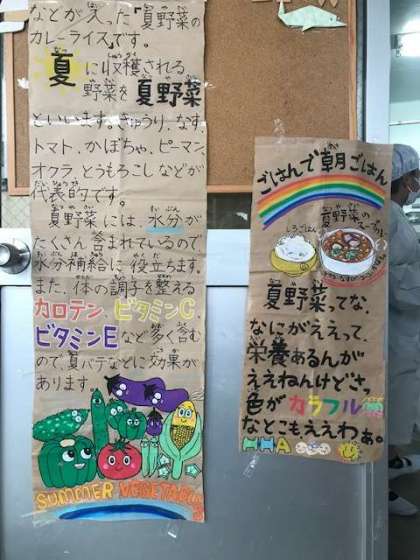 などが入った「夏野菜の
カレーライス」です。
夏に収穫される
野菜を夏野菜
といいます。きゅうり、なす、
トマト、かぼちゃ、ピーマン、
オクラ、とうもろこしなどが
代表的です。
夏野菜には、水分が
たくさん含まれているので
水分補給に役立ちます。
また、体の調子を整える
カロテン、ビタミンC、
ビタミンEなど多く含む
ので、夏バテなどに効果が
あります。
SUMMER VEGETABLE
ごはんで朝ごはん
しろごはん
夏野菜の
スープ
夏野菜ってな、
なにがええって、
栄養あるんが
ええねんけどさっ
色がカラフル
なとこもええわぁ。